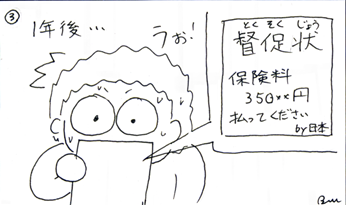 ③
1年後…
うぉ!
とく そく じょう
督促状
保険料
350××円
払ってください
by日本